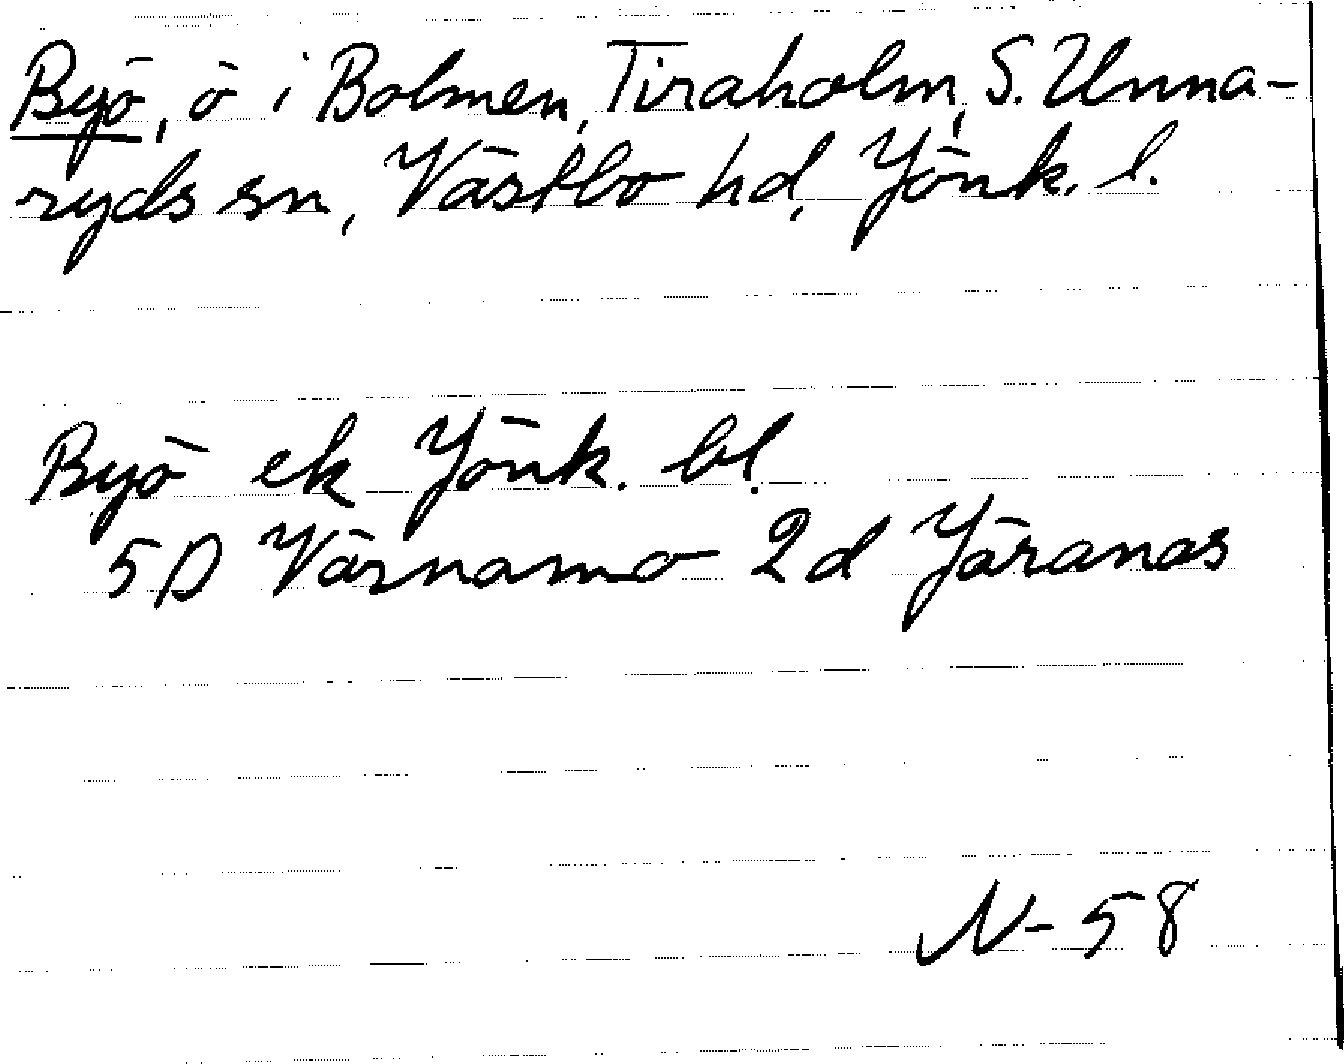 Byö, ö i Bolmen, Tiraholm, S. Unna-
ryds sn, Västbo hd, Jönk. l.
Byö ek Jönk. bl.
5D Värnamo 2d Järanäs
N-58